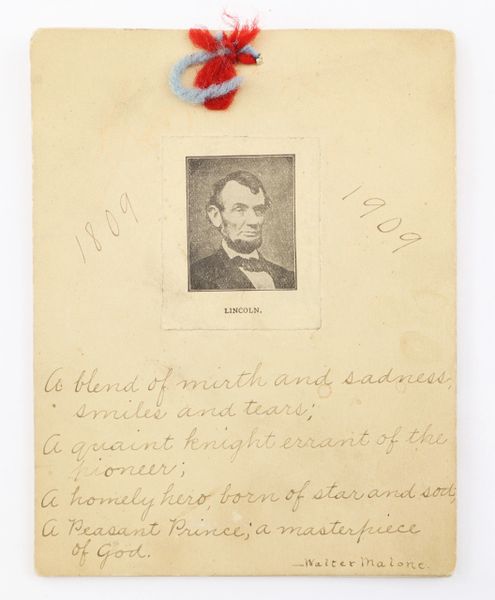 1809
1909
LINCOLN.
A blend of mirth and sadness,
smiles and tears;
A quaint knight errant of the
pioneer;
A homely hero, born of star and sod,
A Peasant Prince; a masterpiece
of God.
—Walter Malone.